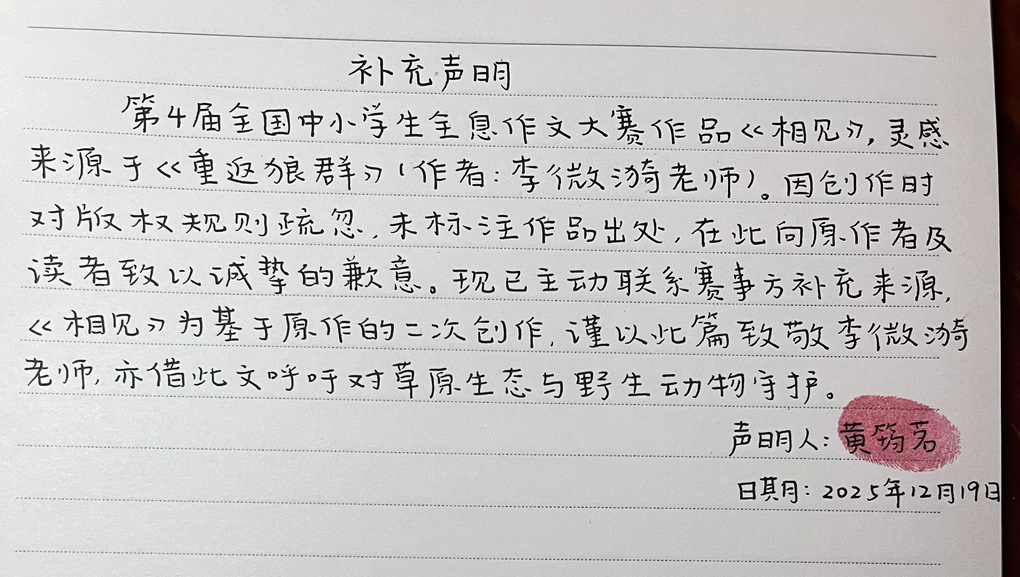 补充声明
第4届全国中小学生全息作文大赛作品《相见》，灵感
来源于《重返狼群》（作者：李微漪老师）。因创作时
对版权规则疏忽，未标注作品出处，在此向原作者及
读者致以诚挚的歉意。现已主动联系赛事方补充来源，
《相见》为基于原作的二次创作，谨以此篇致敬李微漪
老师，亦借此文呼吁对草原生态与野生动物守护。
声明人：黄筠茗
日期：2025年12月19日